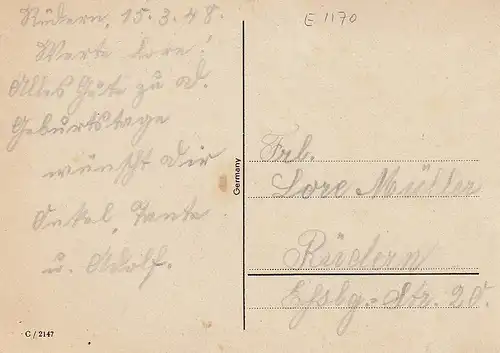 Rüdern, 15.3.48.
Werte Lore!
Alles Gute zu D.
Geburtstage
wünscht Dir
Onkel, Tante
u. Adolf.
C / 2147
Germany
E 1170
Frl.
Lore Müller
Rüdern
Esslg.-Str. 20.